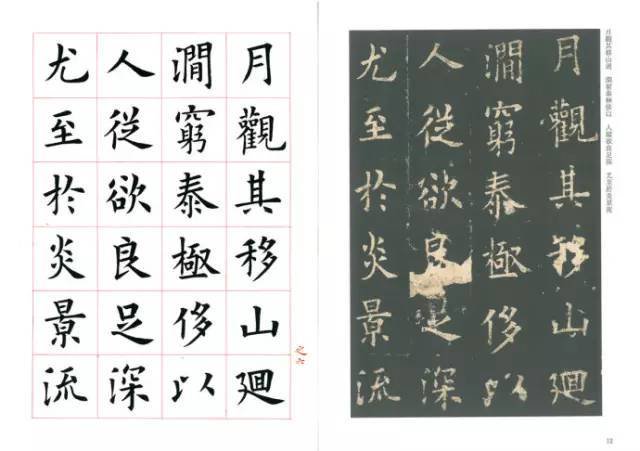 月觀其移山迴 澗窮泰極侈以 人從欲良足深 尤至於炎景流
月觀其移山廻
澗窮泰極侈以
人從欲良足深
尤至於炎景流
之六
月觀其移山廻
澗窮泰極侈以
人從欲良足深
尤至於炎景流